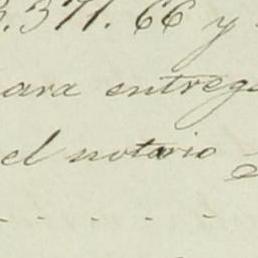 3.371.66 y
para entrega
el notario